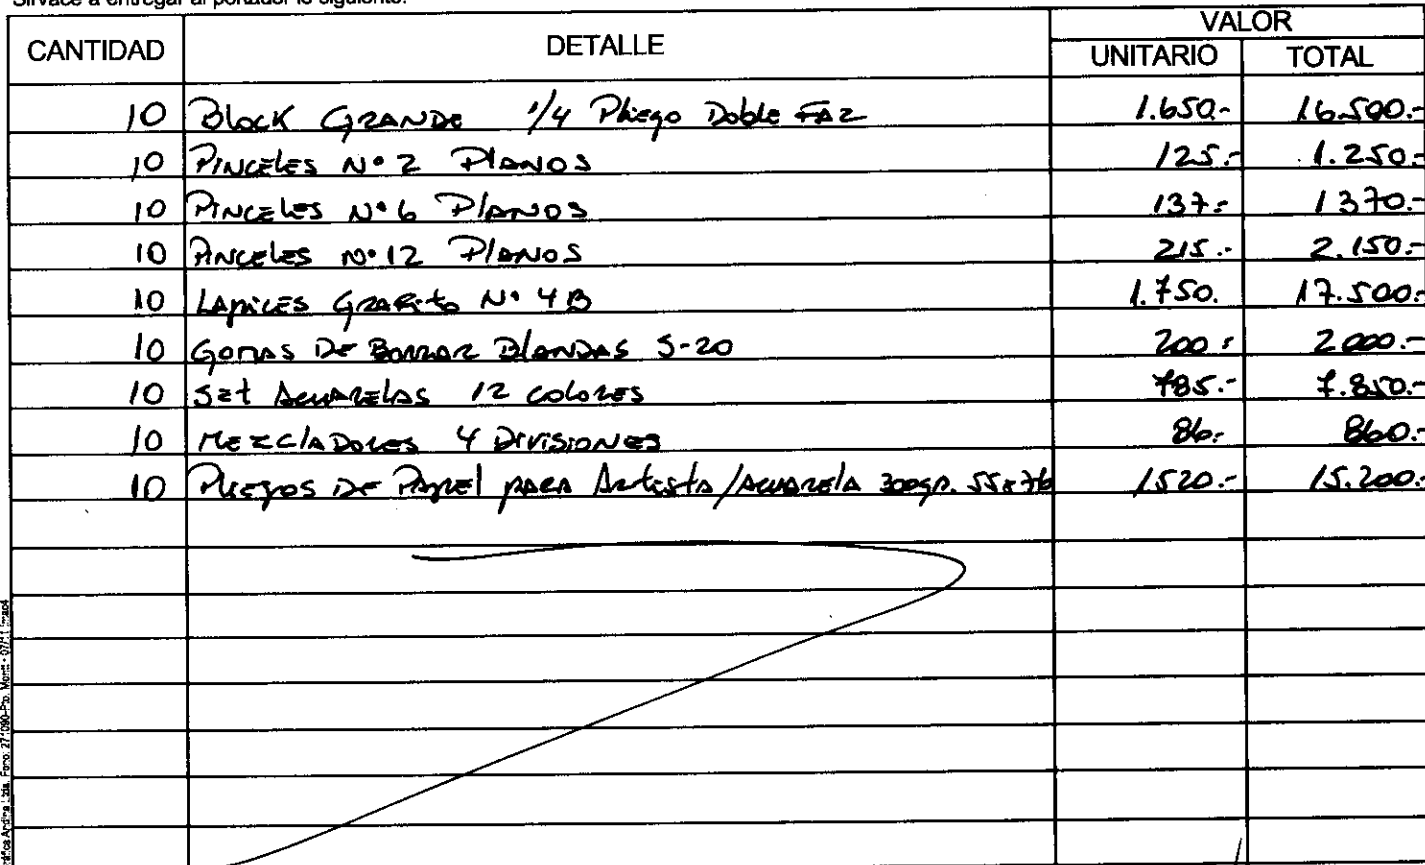 Sirvace a entregar al portador lo siguiente:
CANTIDAD DETALLE VALOR
UNITARIO TOTAL
10 Block GRANDE 1/4 Pliego Doble FAZ 1.650.- 16.500.-
10 PINCELES N° 2 PlANOS 125.- 1.250.-
10 PINCELES N° 6 PlANOS 137.- 1370.-
10 PINCELES N° 12 PlANOS 215.- 2.150.-
10 LApiCES GRAfito N° 4B 1.750. 17.500.-
10 GOMAS DE BORRAR BlANDAS S-20 200.- 2000.-
10 SEt ACUARELAS 12 COLORES 785.- 7.850.-
10 MEZClADORES 4 DIVISIONES 86.- 860.-
10 PLIEGOS DE PAPEl PARA ARtistA/ACUARELA 300gr. 55x76 1520.- 15.200.-